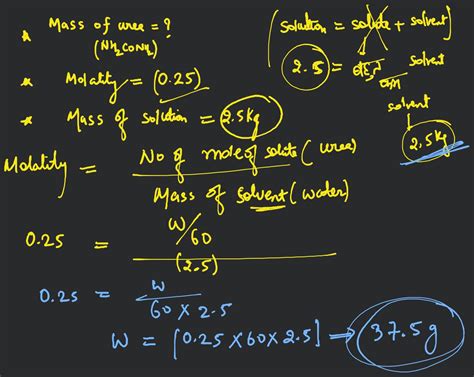 * Mass of urea = ?
(NH2CONH2)
* Molality = (0.25)
* Mass of solution = 2.5kg
[solution = solute + solvent]
2.5 = solvent
solvent
2.5kg
Molality = No of mole of solute (urea)
Mass of solvent (water)
0.25 = W/60
(2.5)
0.25 = W
60 × 2.5
W = [0.25 × 60 × 2.5] → 37.5g